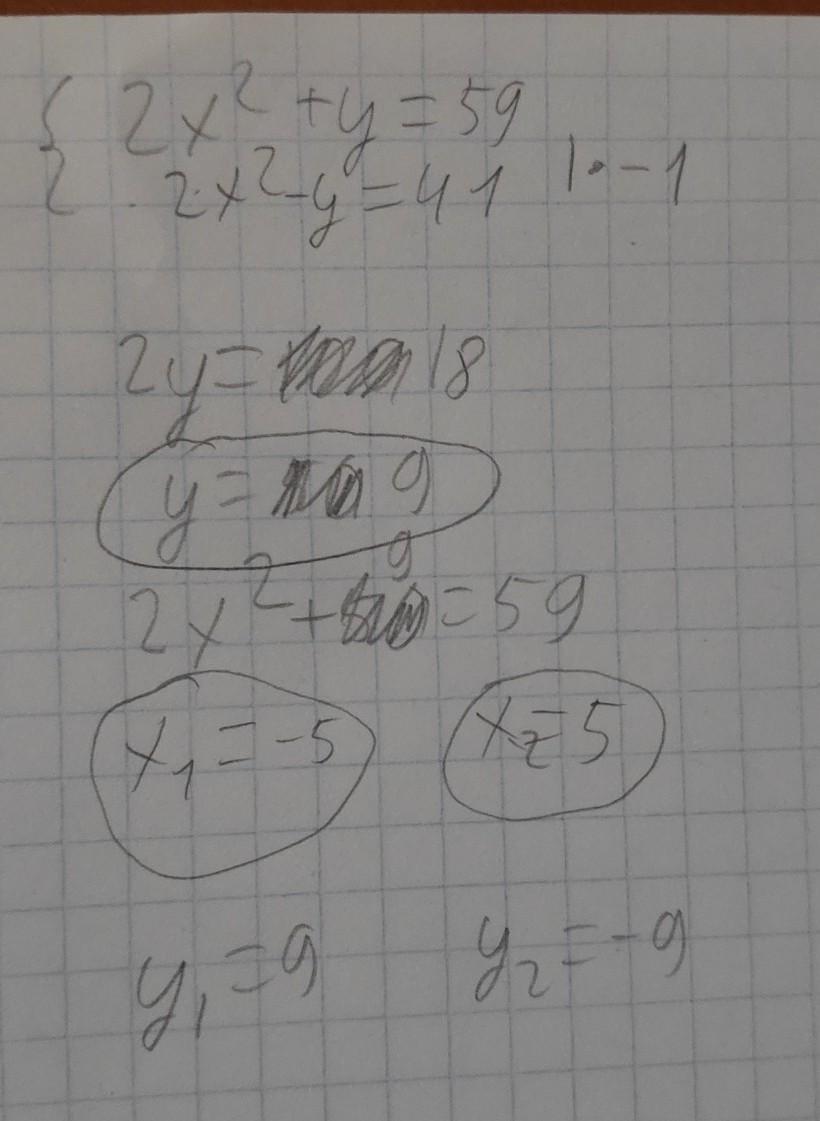 2x² + y = 59
2x² - y = 41 |· -1
2y = 18
y = 9
2x² + 9 = 59
x₁ = -5 x₂ = 5
y₁ = 9 y₂ = -9